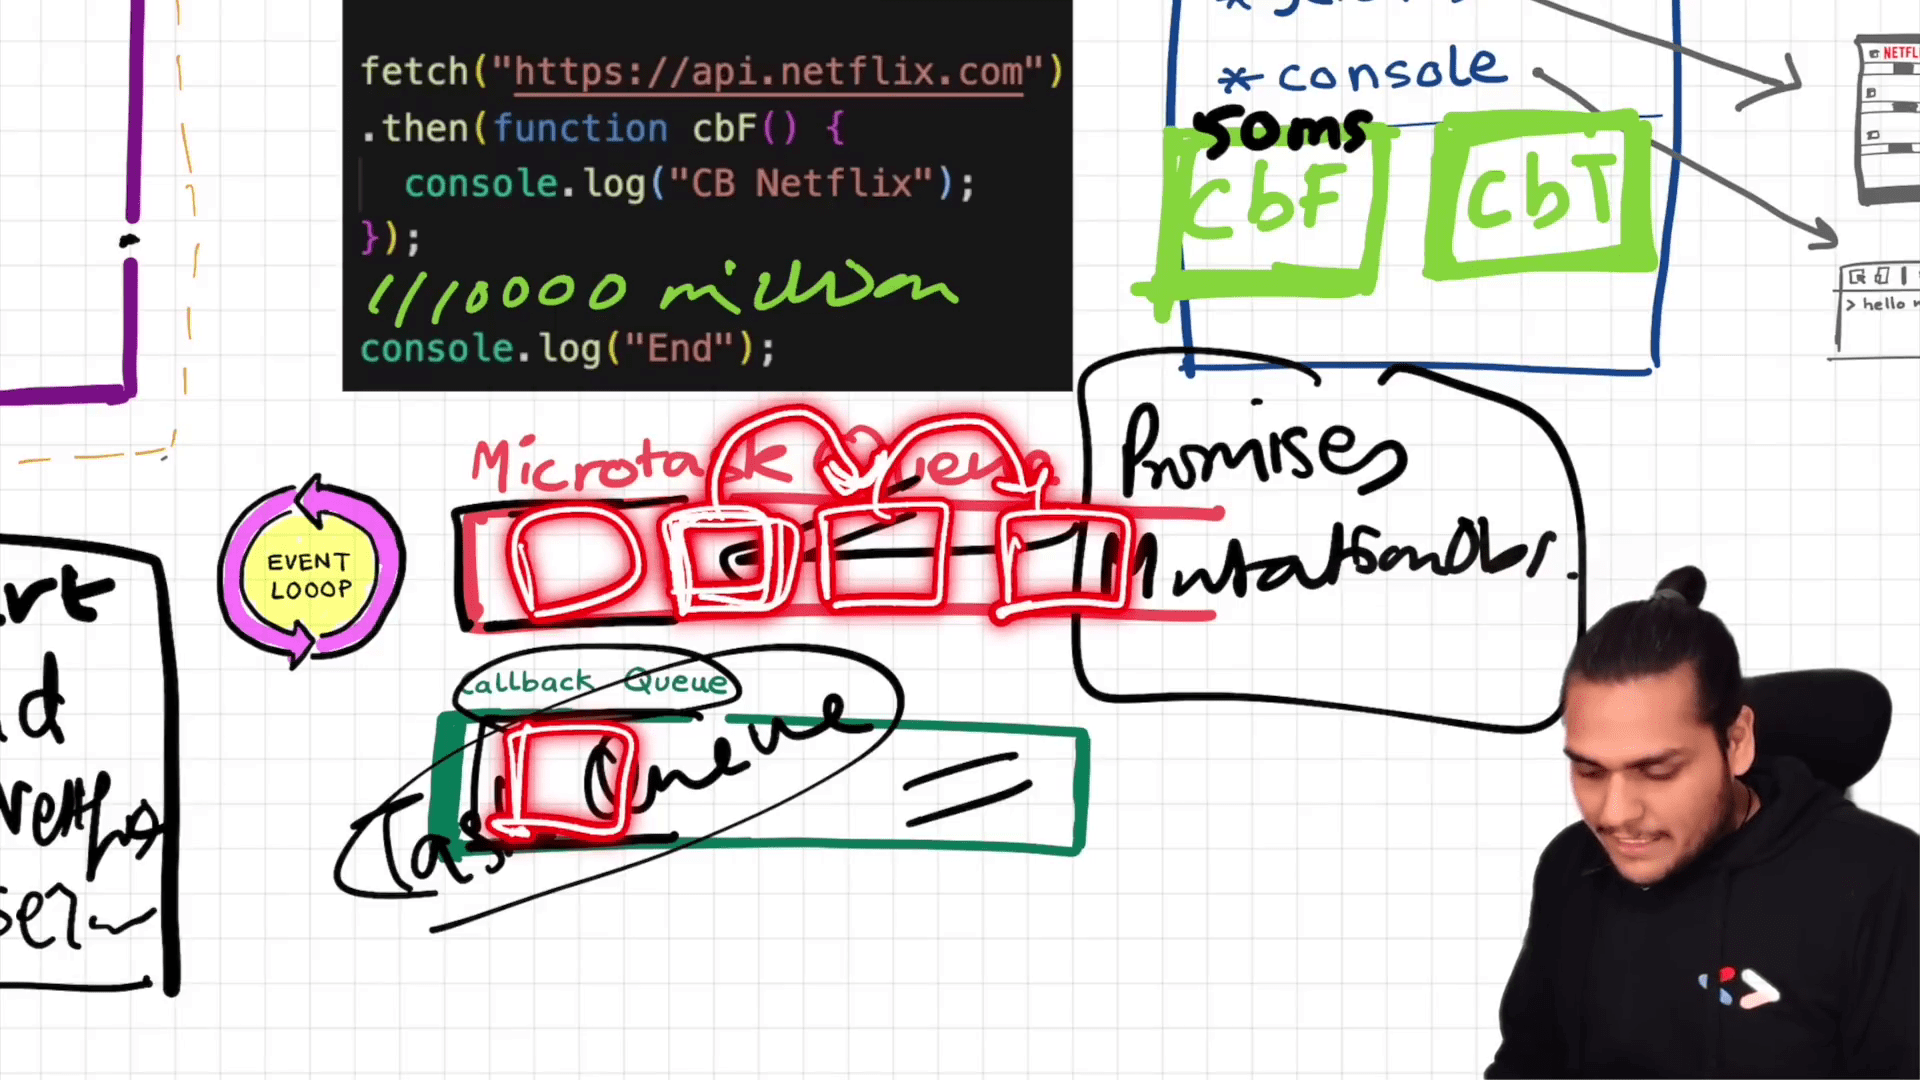 fetch("https://api.netflix.com")
.then(function cbF() {
console.log("CB Netflix");
});
//10000 million
console.log("End");
* console
50ms
CbF
CbT
NETFL
> hello
Microtask Queue
Promises
MutationObs.
EVENT
LOOOP
Callback Queue
Task Queue